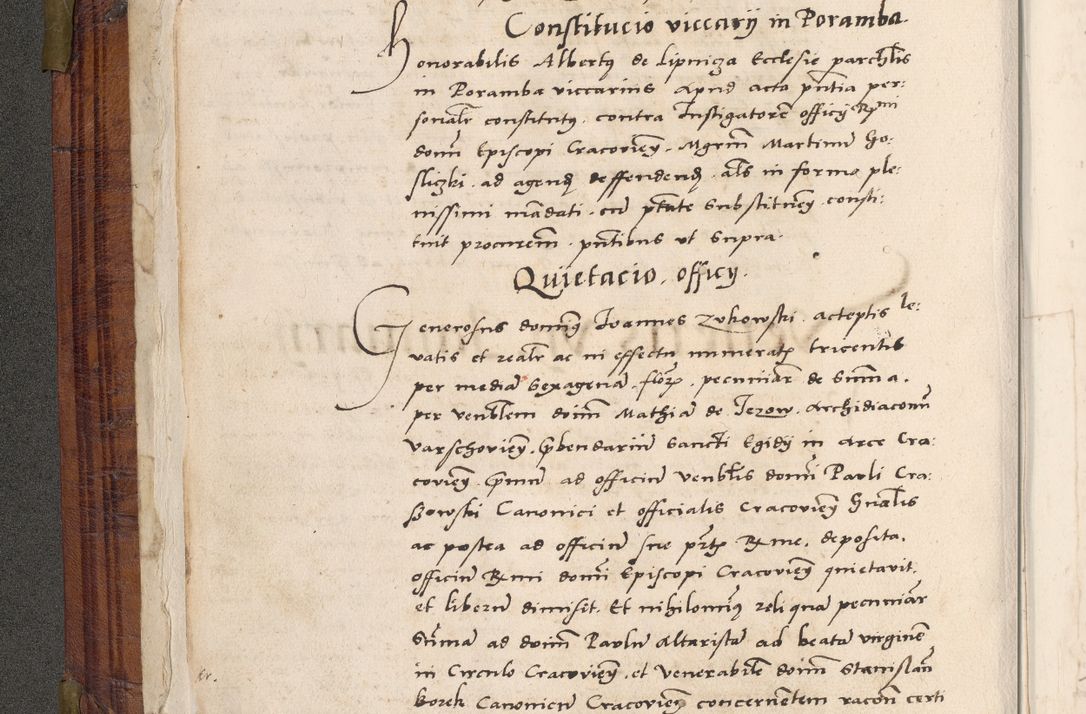 Constitucio viccarij in Poramba.
Honorabilis Albertus de Lipnicza Ecclesie parchlis
in Poramba viccarius Apud acta pntia per:
sonalr constitutus. contra Instigatorem officij Rmi
domi Episcopi Cracovien. Mgrm Martinu Go:
sliczki. ad agend et deffendend. als in forma ple:
nissimi mandati. cu ptate substituen. consti:
tuit procurem. pntibus ut supra.
Quietacio. officij.
Generosus dominus Ioannes Zukowski. acceptis le:
vatis et realr ac in effectu numeratis tricentis
per media sexagena. flor. pecuniar de summa.
per venblem doim Mathia de Iezow. Archidiaconu
Varschovien. Prbendariu Sancti Egidij in Arce Cra:
covien. Primu ad officiu venblis domi Pauli Cra:
szowski Canonici et officialis Cracovien Gnalis
ac postea ad officiu sue Rme. deposita.
officiu Rmi domi Episcopi Cracovien quietavit.
et liberu dimisit. Et nihilominus reliqua pecuniar
Suma ad doim Paulu Altarista ad beata virgine
in Circulo Cracovien. et Venerabile doim Stanislau
Borek Canonicu Cracovien concernentem racon certi